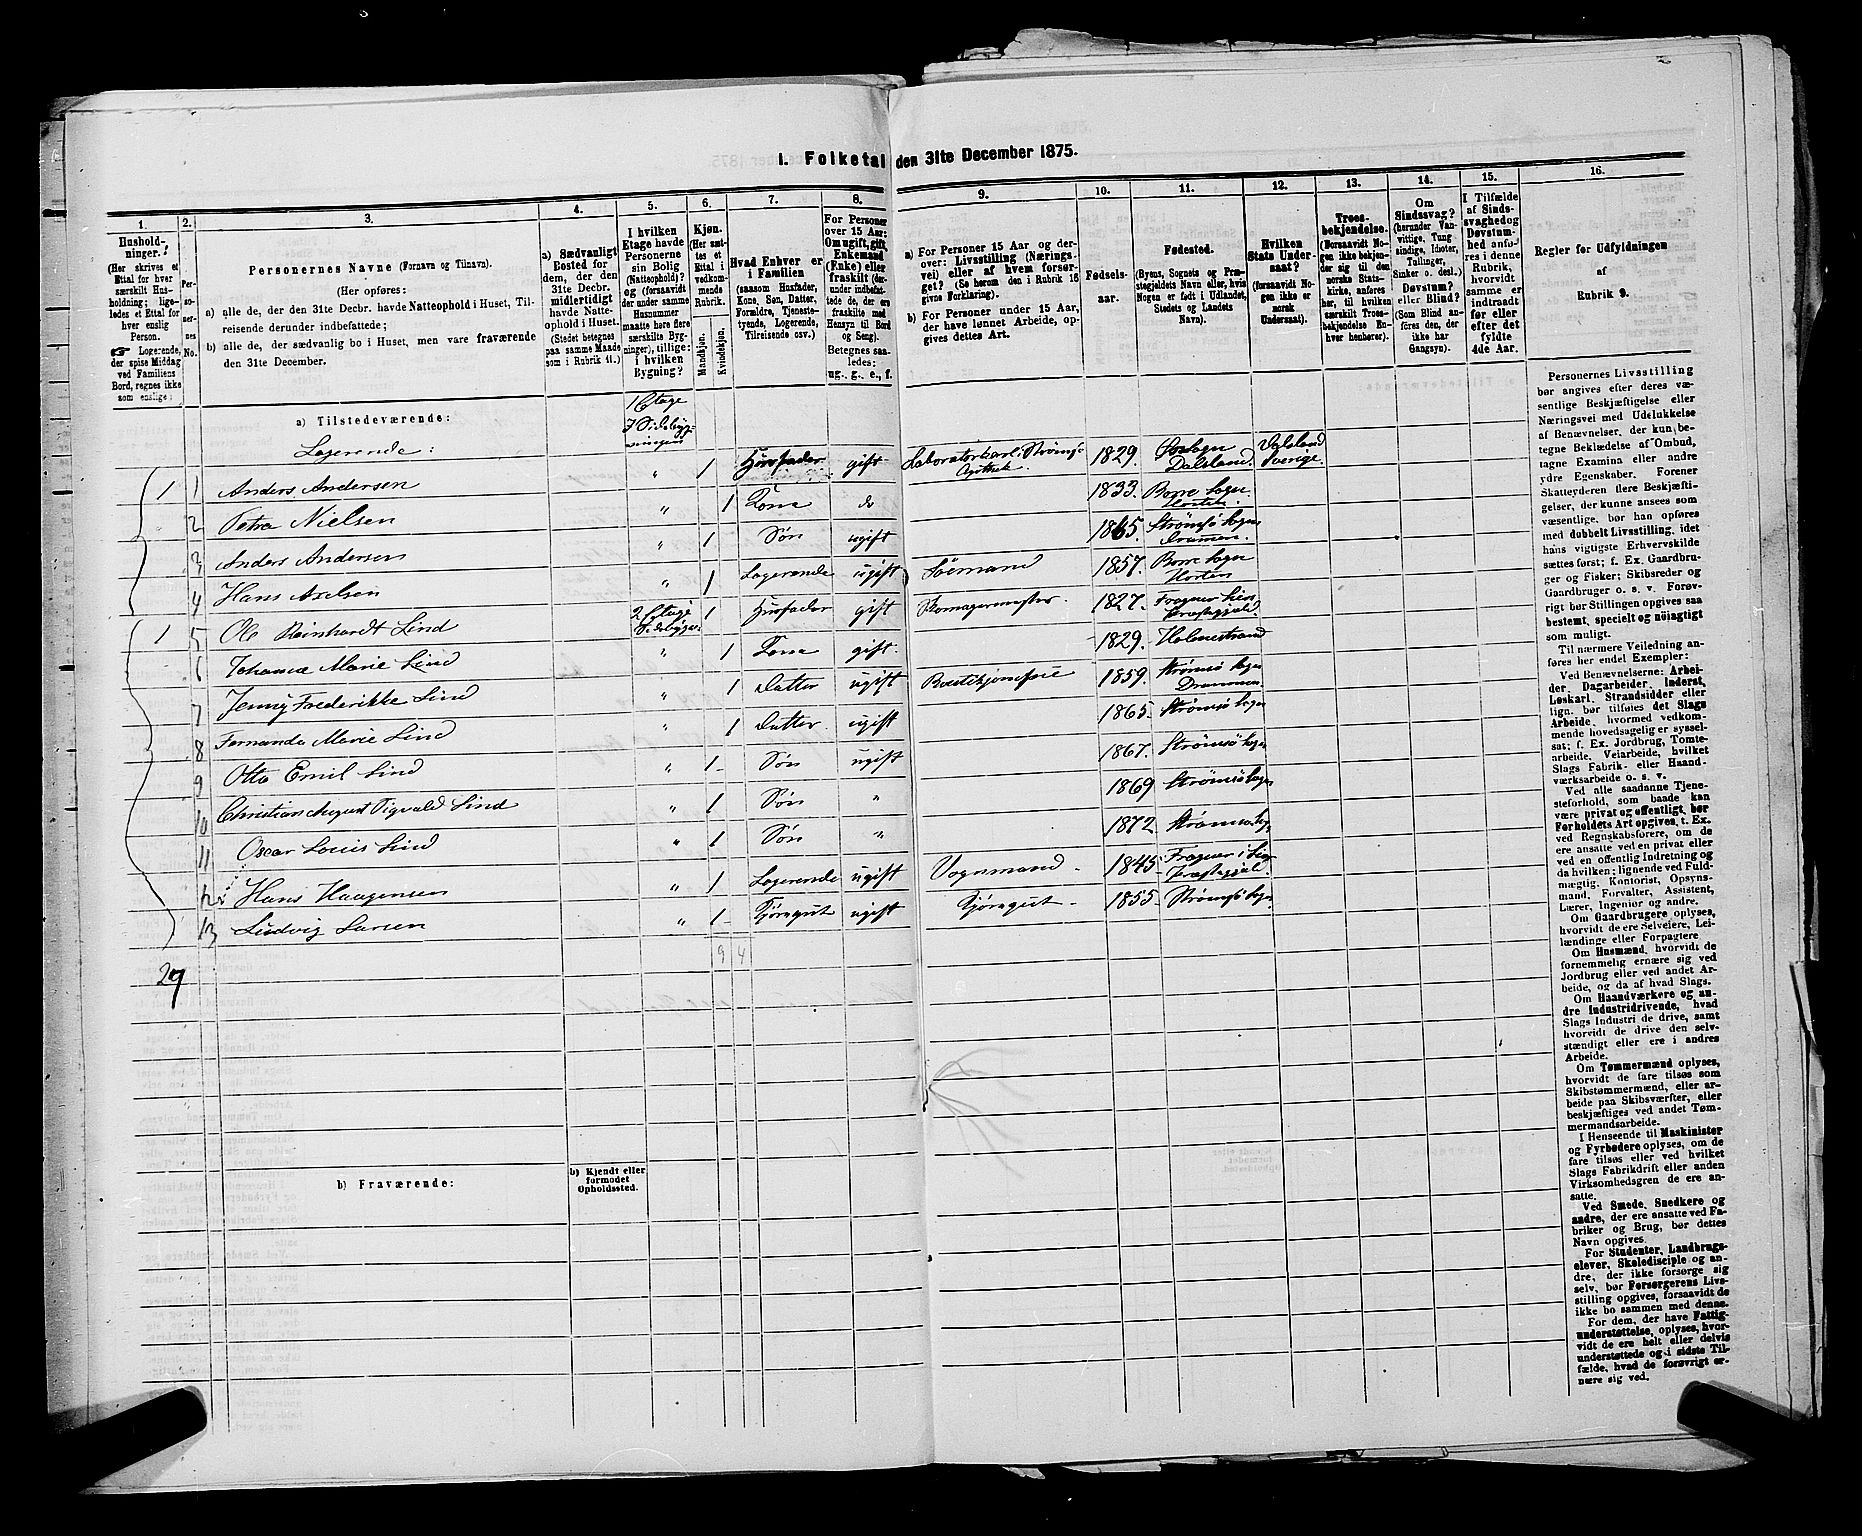 I. Folketal den 31te December 1875.
1. 2. 3. 4. 5. 6. 7. 8. 9. 10. 11. 12. 13. 14. 15. 16.
Hushold-
ninger.
(Her skrives et
Ettal for hver
særskilt Hus-
holdning; lige-
ledes et Ettal for
hver enslig
Person.
☛ Logerende,
der spise Middag
ved Familiens
Bord, regnes ikke
som enslige.)
Per-
so-
ner-
nes
No.
Personernes Navne (Fornavn og Tilnavn).
(Her opføres:
a) alle de, der den 31te Decbr. havde Natteophold i Huset, Til-
reisende derunder indbefattede;
b) alle de, der sædvanlig bo i Huset, men vare fraværende
den 31te December.
a) Sædvanligt
Bosted for
dem, der den
31te Decbr.
midlertidigt
havde Natte-
ophold i Huset.
(Stedet betegnes
paa samme Maade
som i Rubrik 11.)
I hvilken
Etage havde
Personerne
sin Bolig
(Natteophold)?
og (forsaavidt
der under samme
Husnummer
maatte høre flere
særskilte Byg-
ninger), tillige:
i hvilken
Bygning?
Kjøn.
(Her sæt-
tes et
Ettal i
vedkom-
mende
Rubrik.
Mandkjøn.
Kvindekjøn.
Hvad Enhver er
i Familien
(saasom Husfader,
Kone, Søn, Datter,
Forældre, Tjeneste-
tyende, Logerende,
Tilreisende osv.)
For Personer
over 15 Aar:
Om ugift, gift,
Enkemand
(Enke) eller
fraskilt (der-
under indbefat-
tede de, der ere
fraskilte med
Hensyn til Bord
og Seng).
Betegnes saa-
ledes:
ug., g., e., f.
a) For Personer 15 Aar og der-
over: Livsstilling (Nærings-
vei) eller af hvem forsør-
get? (Se herom den i Rubrik 16
givne Forklaring).
b) For Personer under 15 Aar,
der have lønnet Arbeide, op-
gives dettes Art.
Fødsels-
aar.
Fødested.
(Byens, Sognets og Præ-
stegjeldets Navn eller, hvis
Nogen er født i Udlandet,
Stedets og Landets
Navn).
Hvilken
Stats Under-
saat?
(forsaavidt No-
gen ikke er
norsk
Undersaat).
Troes-
bekjendelse.
(Forsaavidt No-
gen ikke bekjen-
der sig til den
norske Stats-
kirke, anføres
her, til hvilken
særskilt Troes-
bekjendelse En-
hver henhører).
Om
Sindssvag?
(herunder Van-
vittige, Tung
sindige, Idioter,
Tullinger,
Sinker o. desl.)
Døvstum?
eller Blind?
(Som Blind an-
føres den, der
ikke har
Gangsyn).
I Tilfælde
af Sinds-
svaghed og
Døvstum-
hed anfø-
res i denne
Rubrik,
hvorvidt
samme er
indtraadt
før eller
efter det
fyldte
4de Aar.
Regler for Udfyldningen
af
Rubrik 9.
a) Tilstedeværende:
1 Etage
I Sidebyg-
ningen
Logerende:
1 1 Anders Andersen " 1 Husfader gift Laboratorkarl i Strømsø Apothek 1829. Dalsland. Dalsland Sverige.
2 Petra Nielsen " 1 Kone do 1833. Borre Sogn Horten
3 Anders Andersen " 1 Søn ugift 1865. Strømsø Sogn Drammen.
4 Hans Axelsen " 1 Logerende ugift Søemand 1857. Borre Sogn Horten
1 5 Ole Reinhardt Lind 2 Etage Sidebygn. 1 Husfader gift Skomagermester. 1827. Præstegjeld.
6 Johanne Marie Lind " 1 Kone gift. 1829. Holmestrand
7 Jenny Frederikke Lind " 1 Datter ugift 1859. Strømsø Sogn Drammen
8 Fernanda Marie Lind " 1 Datter. ugift 1865. Strømsø Sogn
9 Otto Emil Lind " 1 Søn ugift 1867. Strømsø Sogn
10 Christian August Sigvald Lind " 1 Søn " 1869 Strømsø Sogn
11 Oscar Louis Lind " 1 Søn " 1872 Strømsø Sogn
12 Hans Haagensen " 1 Logerende ugift Vognmand 1845 Præstegjeld.
13 Ludvig Larsen " 1 Kjøregut ugift Kjøregut 1855 Strømsø Sogn
9 4
b) Fraværende:
b) Kjendt eller
formodet
Opholdssted.
Personernes Livsstilling
bør angives efter deres væ-
sentlige Beskjæftigelse eller
Næringsvei med Udelukkelse
af Benævnelser, der kun be-
tegne Beklædelse af Ombud,
tagne Examina eller andre
ydre Egenskaber. Forener
Skatteyderen flere Beskjæfti-
gelser, der kunne ansees som
væsentlige, bør han opføres
med dobbelt Livsstilling, idet
hans vigtigste Erhvervskilde
sættes først; f. Ex. Gaardbru-
ger og Fisker; Skibsreder og
Gaardbruger o. s. v. Forøv-
rigt bør Stillingen opgives saa
bestemt, specielt og nøiagtigt
som muligt.
Til nærmere Veiledning an-
føres her endel Exempler:
Ved Benævnelserne: Arbei-
der, Dagarbeider, Inderst,
Løskarl, Strandsidder eller
lign. bør tilføies det Slags
Arbeide, hvormed vedkom-
mende hovedsagelig er syssel-
sat; f. Ex. Jordbrug, Tomte-
arbeide, Veiarbeide, hvilket
Slags Fabrik- eller Haand-
værksarbeide o. s. v.
Ved alle saadanne Tjene-
steforhold, som baade kan
være privat og offentligt, bør
Forholdets Art opgives, t. Ex.
ved Regnskabsførere, om de
ere ansatte ved en privat eller
ved en offentlig Indretning og
da hvilken; lignende ved Fuld-
mægtig, Kontorist, Opsyns-
mand, Forvalter, Assistent,
Lærer, Ingeniør og andre.
Om Gaardbrugere oplyses,
hvorvidt de ere Selveiere, Lei-
lændinge eller Forpagtere
Om Husmænd, hvorvidt de
fornemmelig ernære sig ved
Jordbrug eller ved andet Ar-
beide, og da af hvad Slags.
Om Haandværkere og an-
dre Industridrivende, hvad
Slags Industri de drive, samt
hvorvidt de drive den selv-
stændigt eller ere i andres
Arbeide.
Om Tømmermænd oplyses,
hvorvidt de fare tilsøs som
Skibstømmermænd, eller ar-
beide paa Skibsværfter, eller
beskjæftiges ved andet Tøm-
mermandsarbeide.
I Henseende til Maskinister
og Fyrbødere oplyses, om de
fare tilsøs eller ved hvilket
Slags Fabrikdrift eller anden
Virksomhedsgren de ere an-
satte.
Ved Smede, Snedkere og
andre, der ere ansatte ved Fa-
briker og Brug, bør dettes
Navn opgives.
For Studenter, Landbrugs-
elever, Skoledisciple og an-
dre, der ikke forsørge sig
selv, bør Forsørgerens Livs-
stilling opgives, forsaavidt de
ikke bo sammen med denne.
For dem, der have Fattig-
understøttelse, oplyses, hvor-
vidt de ere helt eller delvis
understøttede og i sidste Til-
fælde, hvad de forøvrigt er-
nære sig ved.